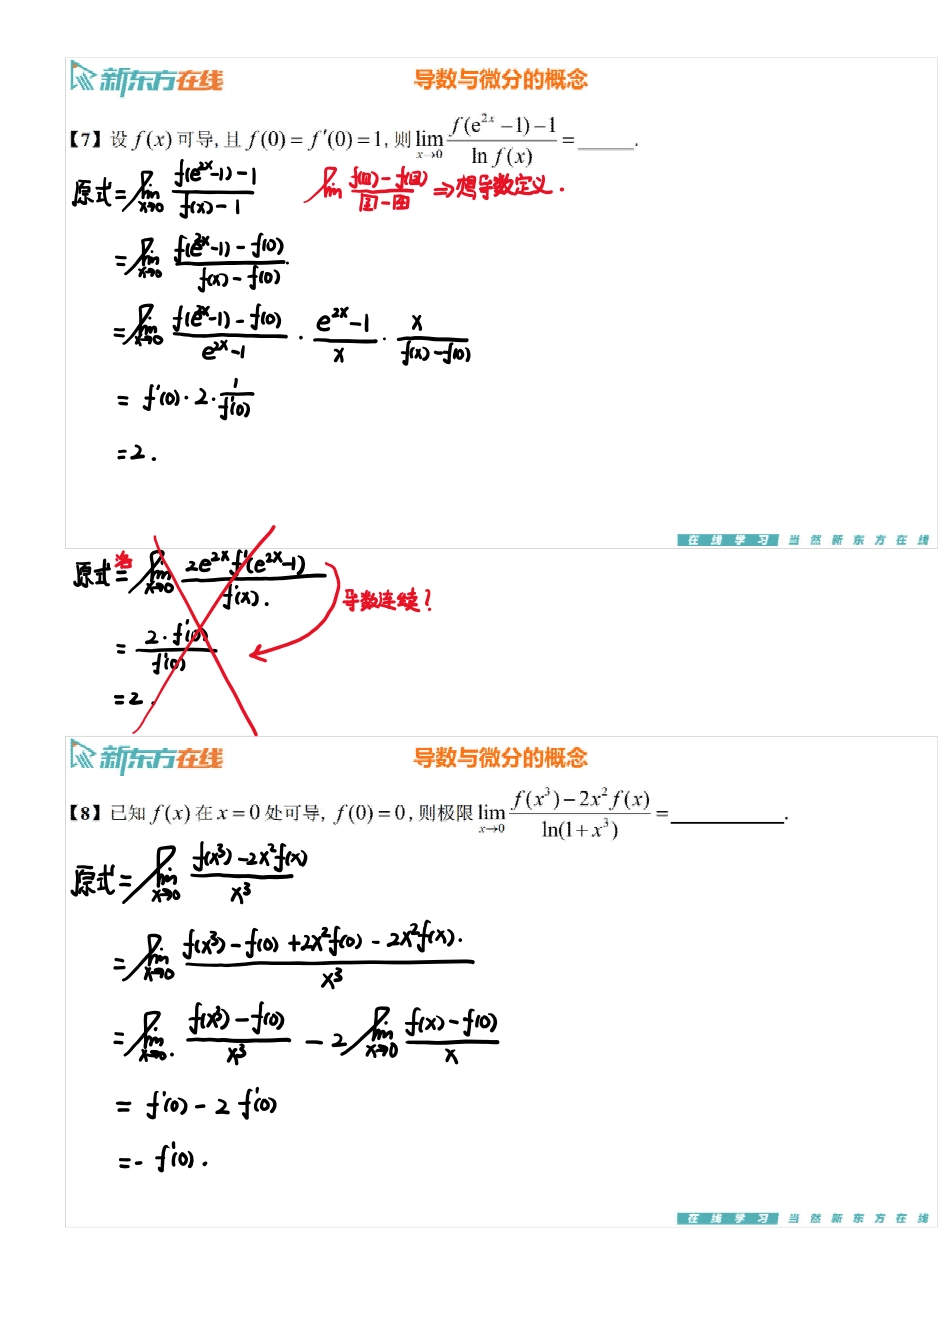 新东方在线
导数与微分的概念
【7】设 f(x) 可导, 且 f(0) = f′(0) = 1, 则 lim_{x→0} (f(e^{2x} − 1) − 1)/(ln f(x)) = ______.
原式 = lim_{x→0} (f(e^{2x}-1)-1)/(f(x)-1)
⇒想导数定义.
= lim_{x→0} (f(e^{2x}-1)-f(0))/(f(x)-f(0)).
= lim_{x→0} (f(e^{2x}-1)-f(0))/(e^{2x}-1) · (e^{2x}-1)/x · x/(f(x)-f(0))
= f′(0)·2·1/f′(0)
=2.
在线学习 当然新东方在线
原式 洛= lim_{x→0} (2e^{2x}f′(e^{2x}-1))/(f′(x)).
导数连续?
= (2·f′(0))/(f′(0))
=2.
新东方在线
导数与微分的概念
【8】已知 f(x) 在 x = 0 处可导, f(0) = 0, 则极限 lim_{x→0} (f(x³) − 2x² f(x))/(ln(1 + x³)) = ______.
原式 = lim_{x→0} (f(x³)-2x²f(x))/x³
= lim_{x→0} (f(x³)-f(0)+2x²f(0)-2x²f(x).)/x³
= lim_{x→0.} (f(x³)-f(0))/x³ - 2 lim_{x→0} (f(x)-f(0))/x
= f′(0)-2f′(0)
=-f′(0).
在线学习 当然新东方在线